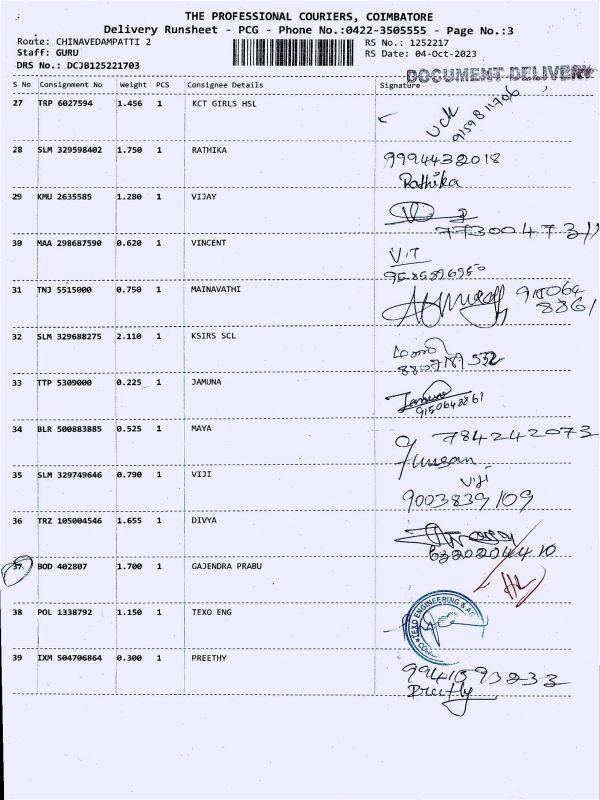 THE PROFESSIONAL COURIERS, COIMBATORE
Delivery Runsheet - PCG - Phone No.:0422-3505555 - Page No.:3
Route: CHINAVEDAMPATTI 2 RS No.: 1252217
Staff: GURU RS Date: 04-Oct-2023
DRS No.: DCJB125221703
DOCUMENT DELIVERY
S No Consignment No Weight PCS Consignee Details Signature
27 TRP 6027594 1.456 1 KCT GIRLS HSL
9159811706
28 SLM 329598402 1.750 1 RATHIKA
9994432018
Rathika
29 KMU 2635585 1.280 1 VIJAY
30 MAA 298687590 0.620 1 VINCENT
31 TNJ 5515000 0.750 1 MAINAVATHI
915064
8861
32 SLM 329688275 2.110 1 KSIRS SCL
33 TTP 5309000 0.225 1 JAMUNA
Jamuna
9150648861
34 BLR 500883885 0.525 1 MAYA
784242073
35 SLM 329749646 0.790 1 VIJI
Viji
9003839109
36 TRZ 105004546 1.655 1 DIVYA
6320204410
37 BOD 402807 1.700 1 GAJENDRA PRABU
38 POL 1338792 1.150 1 TEXO ENG
TEXO ENGINEERING &
39 IXM 504706864 0.300 1 PREETHY
9941593233
Preethy